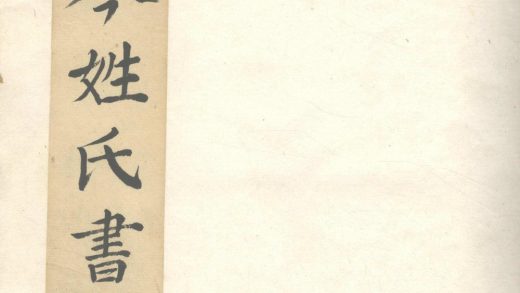 姓氏書